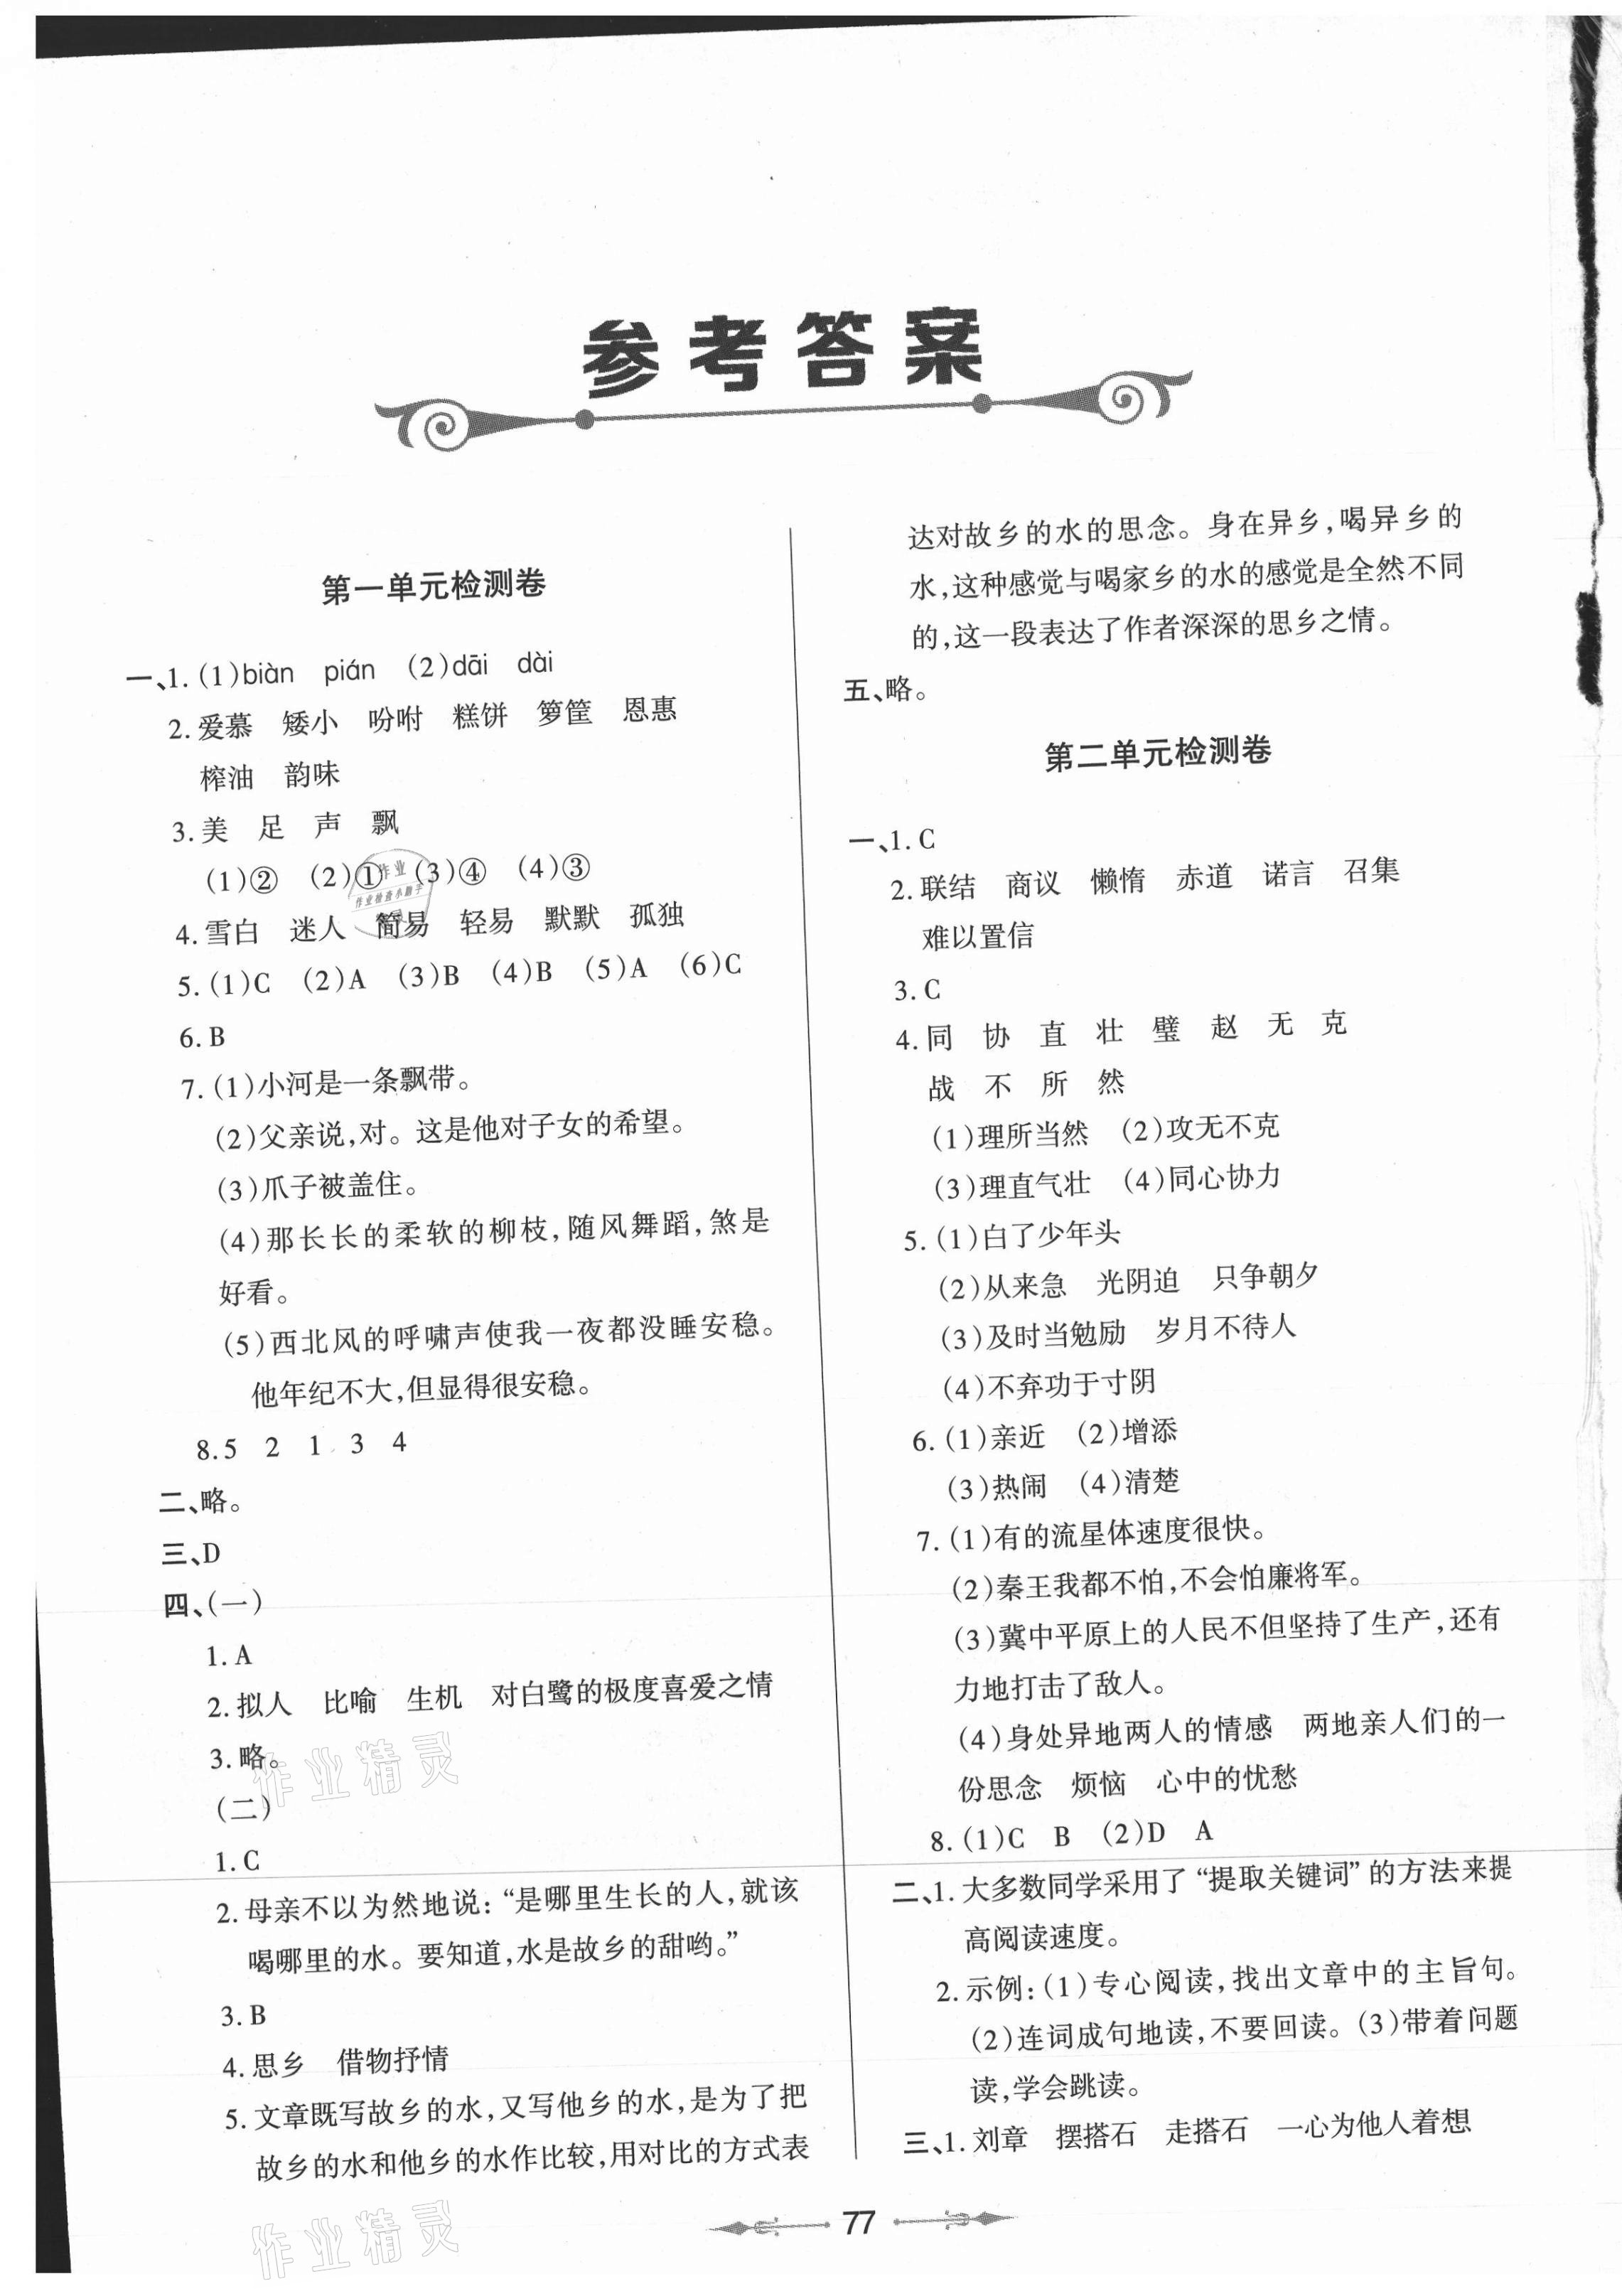 参考答案
第一单元检测卷
一、1.(1)biàn pián (2)dāi dài
2.爱慕 矮小 吩咐 糕饼 箩筐 恩惠
榨油 韵味
3.美 足 声 飘
(1)② (2)① (3)④ (4)③
4.雪白 迷人 简易 轻易 默默 孤独
5.(1)C (2)A (3)B (4)B (5)A (6)C
6.B
7.(1)小河是一条飘带。
(2)父亲说,对。这是他对子女的希望。
(3)爪子被盖住。
(4)那长长的柔软的柳枝,随风舞蹈,煞是
好看。
(5)西北风的呼啸声使我一夜都没睡安稳。
他年纪不大,但显得很安稳。
8.5 2 1 3 4
二、略。
三、D
四、(一)
1.A
2.拟人 比喻 生机 对白鹭的极度喜爱之情
3.略。
(二)
1.C
2.母亲不以为然地说:“是哪里生长的人,就该
喝哪里的水。要知道,水是故乡的甜哟。”
3.B
4.思乡 借物抒情
5.文章既写故乡的水,又写他乡的水,是为了把
故乡的水和他乡的水作比较,用对比的方式表
达对故乡的水的思念。身在异乡,喝异乡的
水,这种感觉与喝家乡的水的感觉是全然不同
的,这一段表达了作者深深的思乡之情。
五、略。
第二单元检测卷
一、1.C
2.联结 商议 懒惰 赤道 诺言 召集
难以置信
3.C
4.同 协 直 壮 璧 赵 无 克
战 不 所 然
(1)理所当然 (2)攻无不克
(3)理直气壮 (4)同心协力
5.(1)白了少年头
(2)从来急 光阴迫 只争朝夕
(3)及时当勉励 岁月不待人
(4)不弃功于寸阴
6.(1)亲近 (2)增添
(3)热闹 (4)清楚
7.(1)有的流星体速度很快。
(2)秦王我都不怕,不会怕廉将军。
(3)冀中平原上的人民不但坚持了生产,还有
力地打击了敌人。
(4)身处异地两人的情感 两地亲人们的一
份思念 烦恼 心中的忧愁
8.(1)C B (2)D A
二、1.大多数同学采用了“提取关键词”的方法来提
高阅读速度。
2.示例:(1)专心阅读,找出文章中的主旨句。
(2)连词成句地读,不要回读。(3)带着问题
读,学会跳读。
三、1.刘章 摆搭石 走搭石 一心为他人着想
77
作业精灵
作业精灵
作业
作业检查小助手